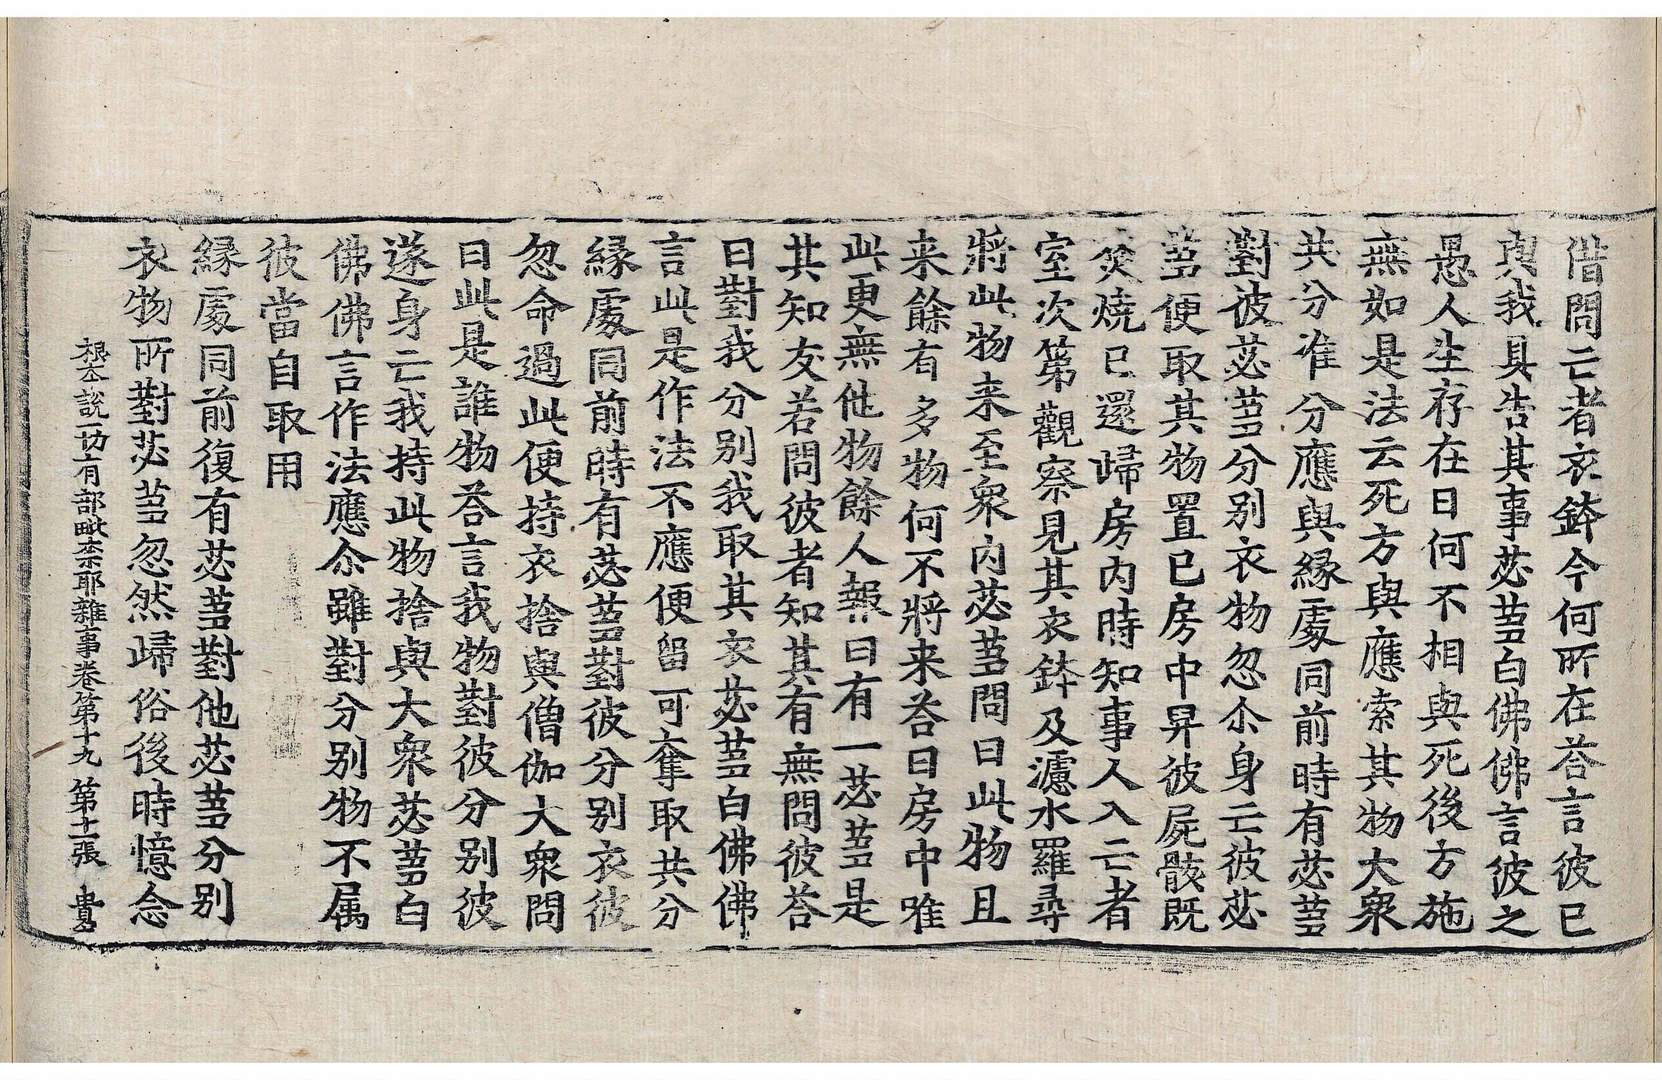 借問亡者衣鉢今何所在荅言彼已
與我具告其事苾蒭白佛佛言彼之
愚人生存在日何不相與死後方施
無如是法云死方與應索其物大衆
共分准分應與縁處同前時有苾蒭
對彼苾蒭分别衣物忽尒身亡彼苾
蒭便取其物置已房中舁彼屍骸既
焚燒已還歸房内時知事人入亡者
室次第觀察見其衣鉢及濾水羅尋
將此物来至衆内苾蒭問曰此物且
来餘有多物何不將来荅曰房中唯
此更無他物餘人報曰有一苾蒭是
其知友若問彼者知其有無問彼荅
曰對我分别我取其衣苾蒭白佛佛
言此是作法不應便留可奪取共分
縁處同前時有苾蒭對彼分别衣彼
忽命過此便持衣捨與僧伽大衆問
曰此是誰物荅言我物對彼分别彼
遂身亡我持此物捨與大衆苾蒭白
佛佛言作法應尒雖對分别物不属
彼當自取用
縁處同前復有苾蒭對他苾蒭分别
衣物所對苾蒭忽然歸俗後時憶念
根本說一切有部毗奈耶雜事卷第十九 第十一張